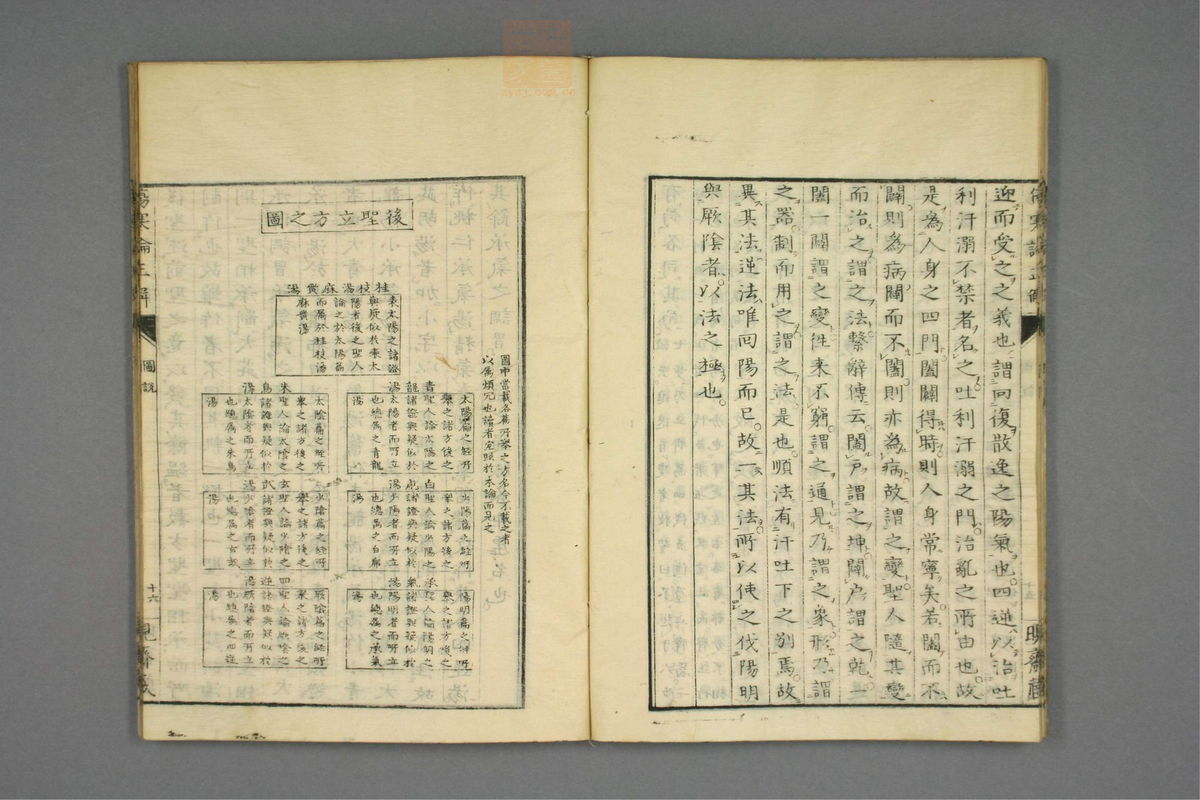 迎而受之之義也謂回復散逸之陽氣也四逆以治吐
利汗溺不禁者名之吐利汗溺之門治亂之所由也故
是為人身之四門闔闢得時則人身常寧矣若闔而不
闢則為病闢而不闔則亦為病故謂之變聖人隨其變
而治之謂之法繫辭傳云闔戶謂之坤闢戶謂之乾一
闔一闢謂之變往來不窮謂之通見乃謂之象形乃謂
之器制而用之謂之法是也順法有汗吐下之別焉故
異其法逆法唯回陽而已故一其法所以使之伐陽明
與厥陰者以法之極也
傷寒論正解
圖說
十六
後聖立方之圖
圖中當載各篇所擧之方名今不載之者
以為煩冗也讀者宜照於本論而見之
桂枝湯麻黃湯
東太陽之諸證
與疑似於東太
陽者後之聖人
論之於太陽篇
而屬於桂枝湯
麻黃湯
太陽篇之經所
擧之諸方後之
聖人論太陽之
諸證與疑似於
太陽者而所立
也總屬之青龍
湯
青龍湯
少陽篇之經所
擧之諸方後之
聖人論少陽之
諸證與疑似於
少陽者而所立
也總屬之白虎
湯
白虎湯
陽明篇之經所
擧之諸方後之
聖人論陽明之
諸證與疑似於
陽明者而所立
也總屬之承氣
湯
承氣湯
太陰篇之經所
擧之諸方後之
聖人論太陰之
諸證與疑似於
太陰者而所立
也總屬之朱鳥
湯
朱鳥湯
少陰篇之經所
擧之諸方後之
聖人論少陰之
諸證與疑似於
少陰者而所立
也總屬之玄武
湯
玄武湯
厥陰篇之經所
擧之諸方後之
聖人論厥陰之
諸證與疑似於
厥陰者而所立
也總屬之四逆
湯
四逆湯